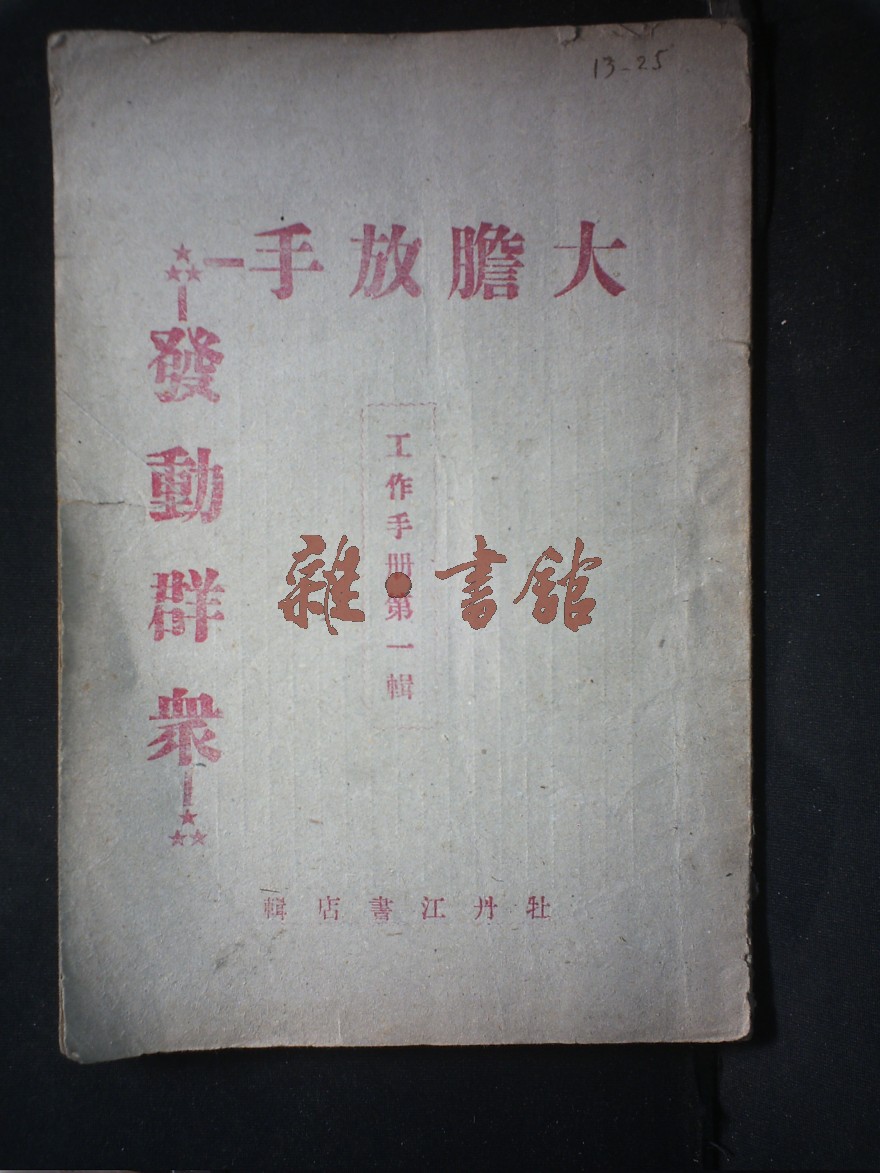 13-25
大膽放手
發動群衆
工作手冊第一輯
雜·書館
牡丹江書店輯